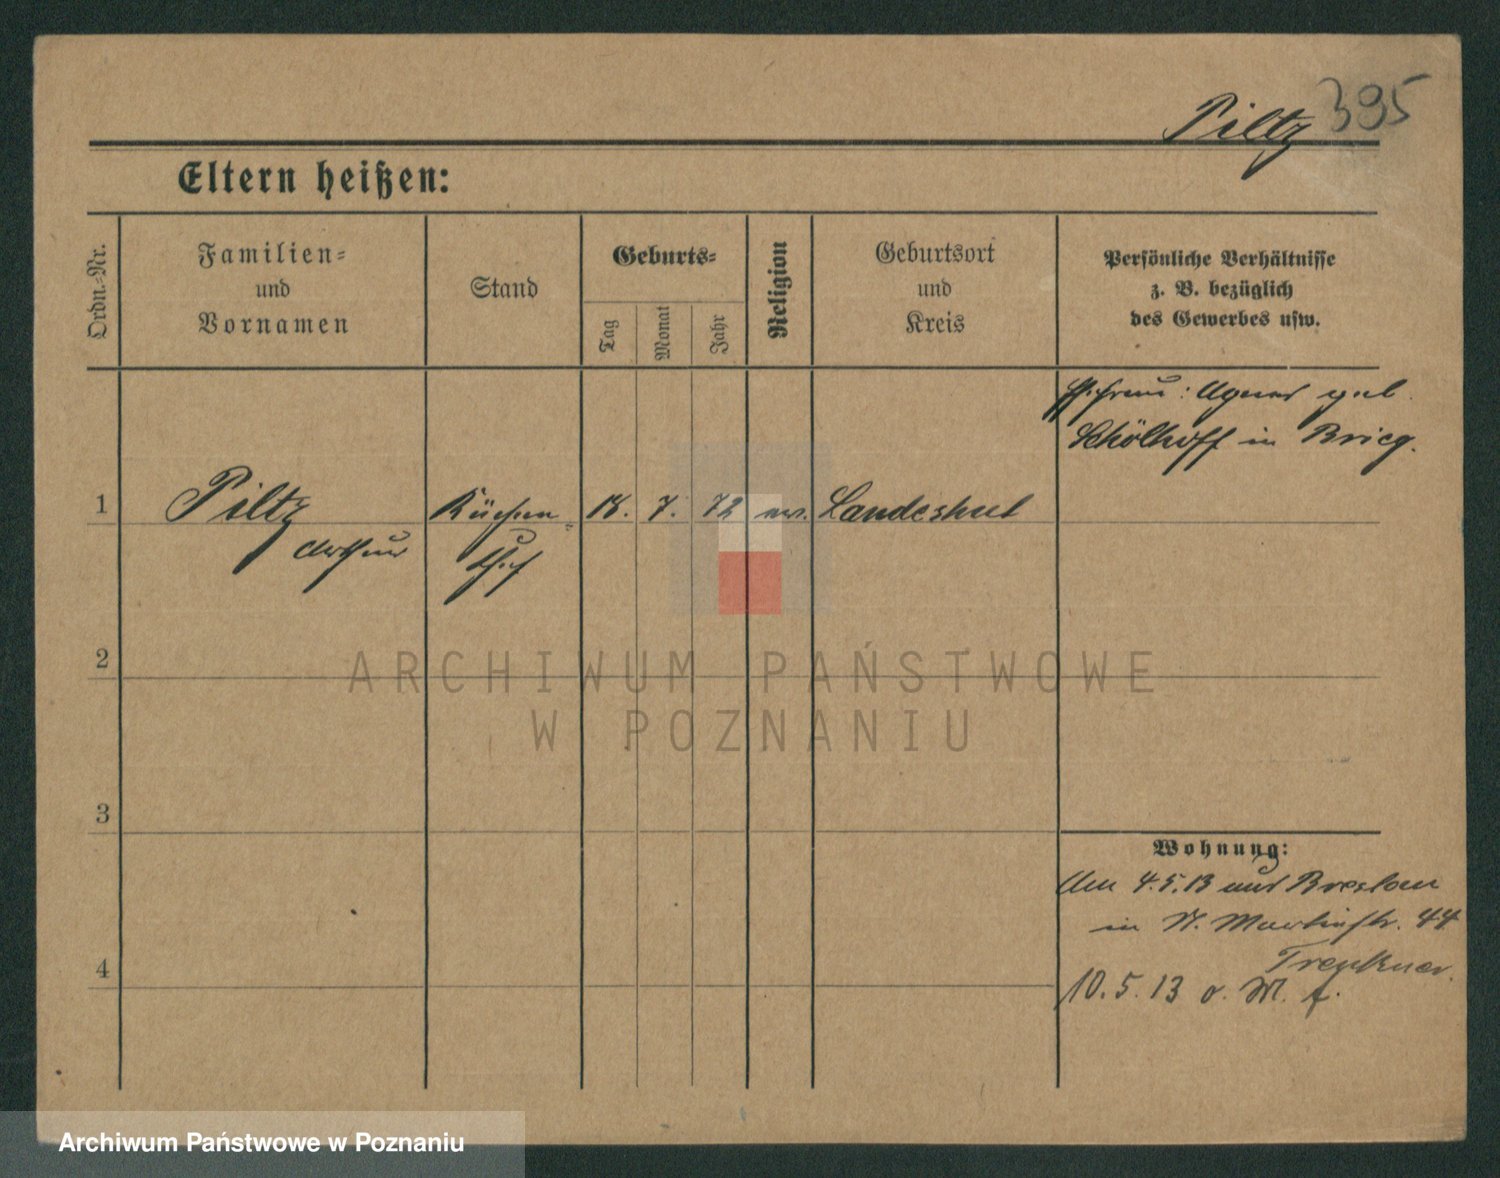 Piltz 395
Eltern heißen:
Ordn.-Nr.
Familien-
und
Vornamen
Stand
Geburts-
Tag
Monat
Jahr
Religion
Geburtsort
und
Kreis
Persönliche Verhältnisse
z. B. bezüglich
des Gewerbes usw.
Ehefrau: Agnes geb.
Schölhoff in Brieg.
1 Piltz Küchen- 18. 7. 72 ev. Landeshut
Arthur chef
2
3
4
Wohnung:
Am 4.5.13 aus Breslau
in St. Martinstr. 44
10.5.13 o. M. f.
ARCHIWUM PAŃSTWOWE
W POZNANIU
Archiwum Państwowe w Poznaniu